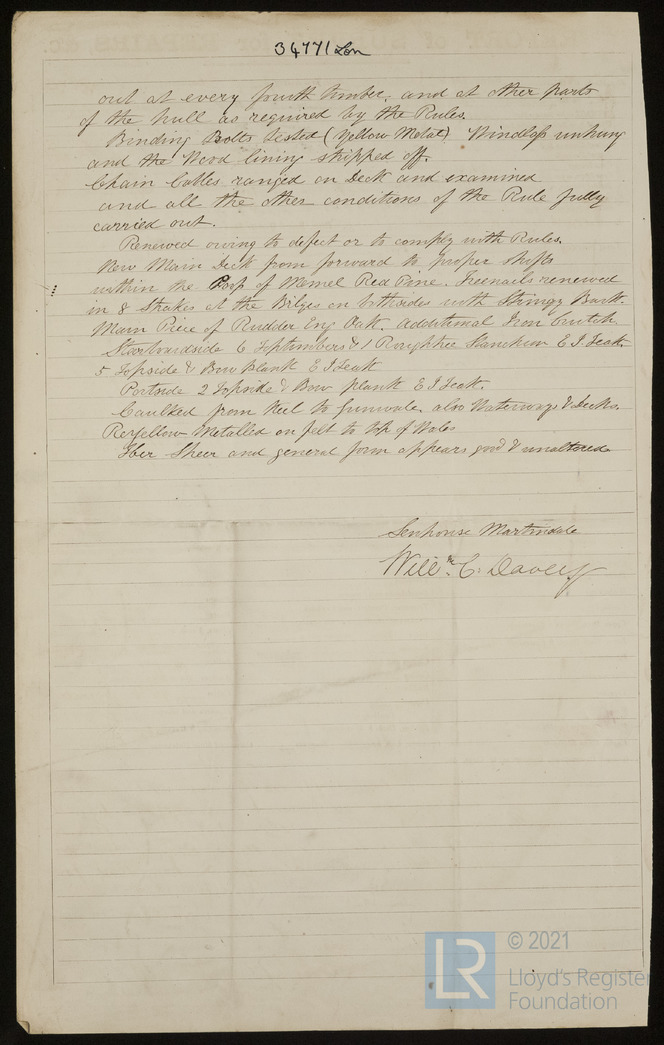 34771 Lon
out at every fourth timber, and at other parts
of the hull as required by the Rules.
Binding Bolts tested (Yellow Metal) Windlass unhung
and the Wood lining stripped off.
Chain Cables ranged on Deck and examined
and all the other conditions of the Rule fully
carried out.
Renewed owing to defect or to comply with Rules.
New Main Deck from forward to proper shifts
within the Poop of Memel Red Pine. Treenails renewed
in 8 Strakes at the Bilges on bothsides with Stringy Bark
Main Piece of Rudder Eng Oak. Additional Iron Crutch.
Starboardside 6 Toptimbers & 1 Roughtree Stanchion E I Teak.
5 Topside & Bow Plank E I Teak
Portside 2 Topside & Bow plank E I Teak.
Caulked from Keel to Gunwale, also Waterways & Decks.
ReYellow Metalled on felt to top of Wales
Her Sheer and general form appears good & unaltered
Senhouse Martindale
Willm. C: Davey
© 2021
LR
Lloyd's Register
Foundation